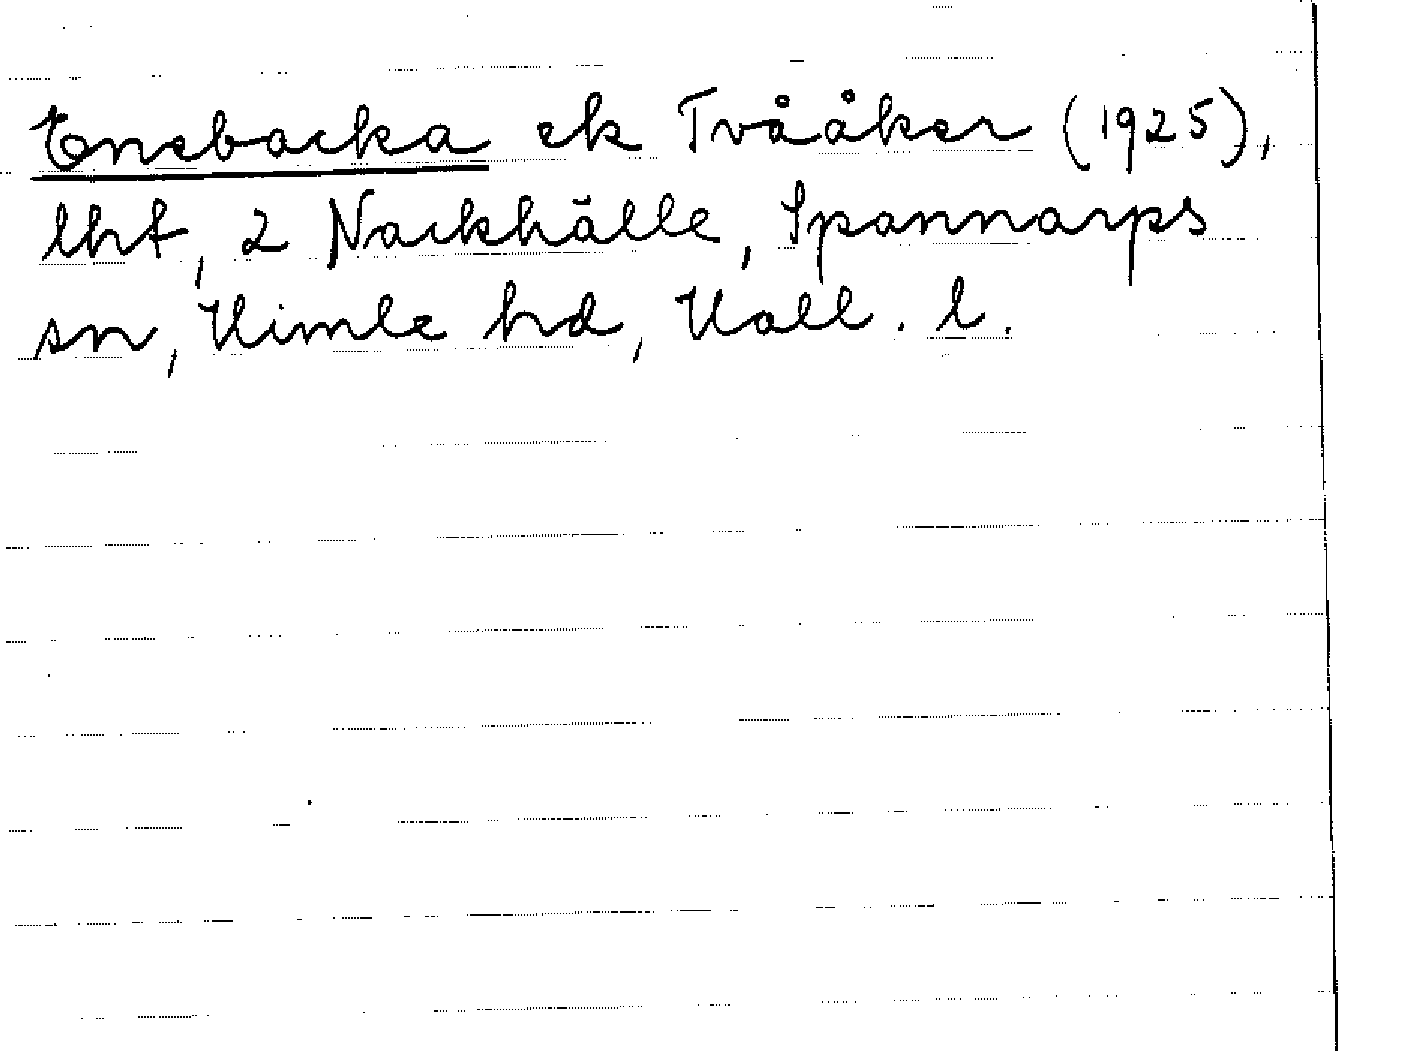 Enebacka ek Tvååker (1925),
lht, 2 Nackhälle, Spannarps
sn, Himle hd, Hall. l.